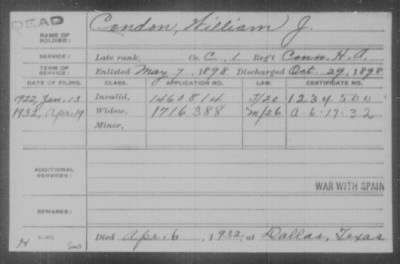 DEAD
NAME OF SOLDIER: Condon, William J.
SERVICE: Late rank, Co. C, 1 Reg't Conn. H. A.
TERM OF SERVICE: Enlisted May 7, 1898 Discharged Oct. 29, 1898
DATE OF FILING. CLASS. APPLICATION NO. LAW. CERTIFICATE NO.
1922 Jan. 13 Invalid, 1460814 J/20 1234500
1932, Apr. 19 Widow, 1716388 M/26 A-6-17-32
Minor,
ADDITIONAL SERVICES:
WAR WITH SPAIN
REMARKS:
Died Apr. 6, 1932, at Dallas, Texas